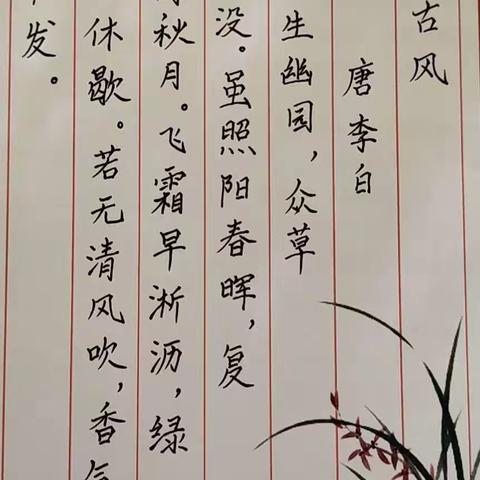 古风
唐李白
生幽园，众草
没。虽照阳春晖，复
秋月。飞霜早淅沥，绿
休歇。若无清风吹，香气
发。